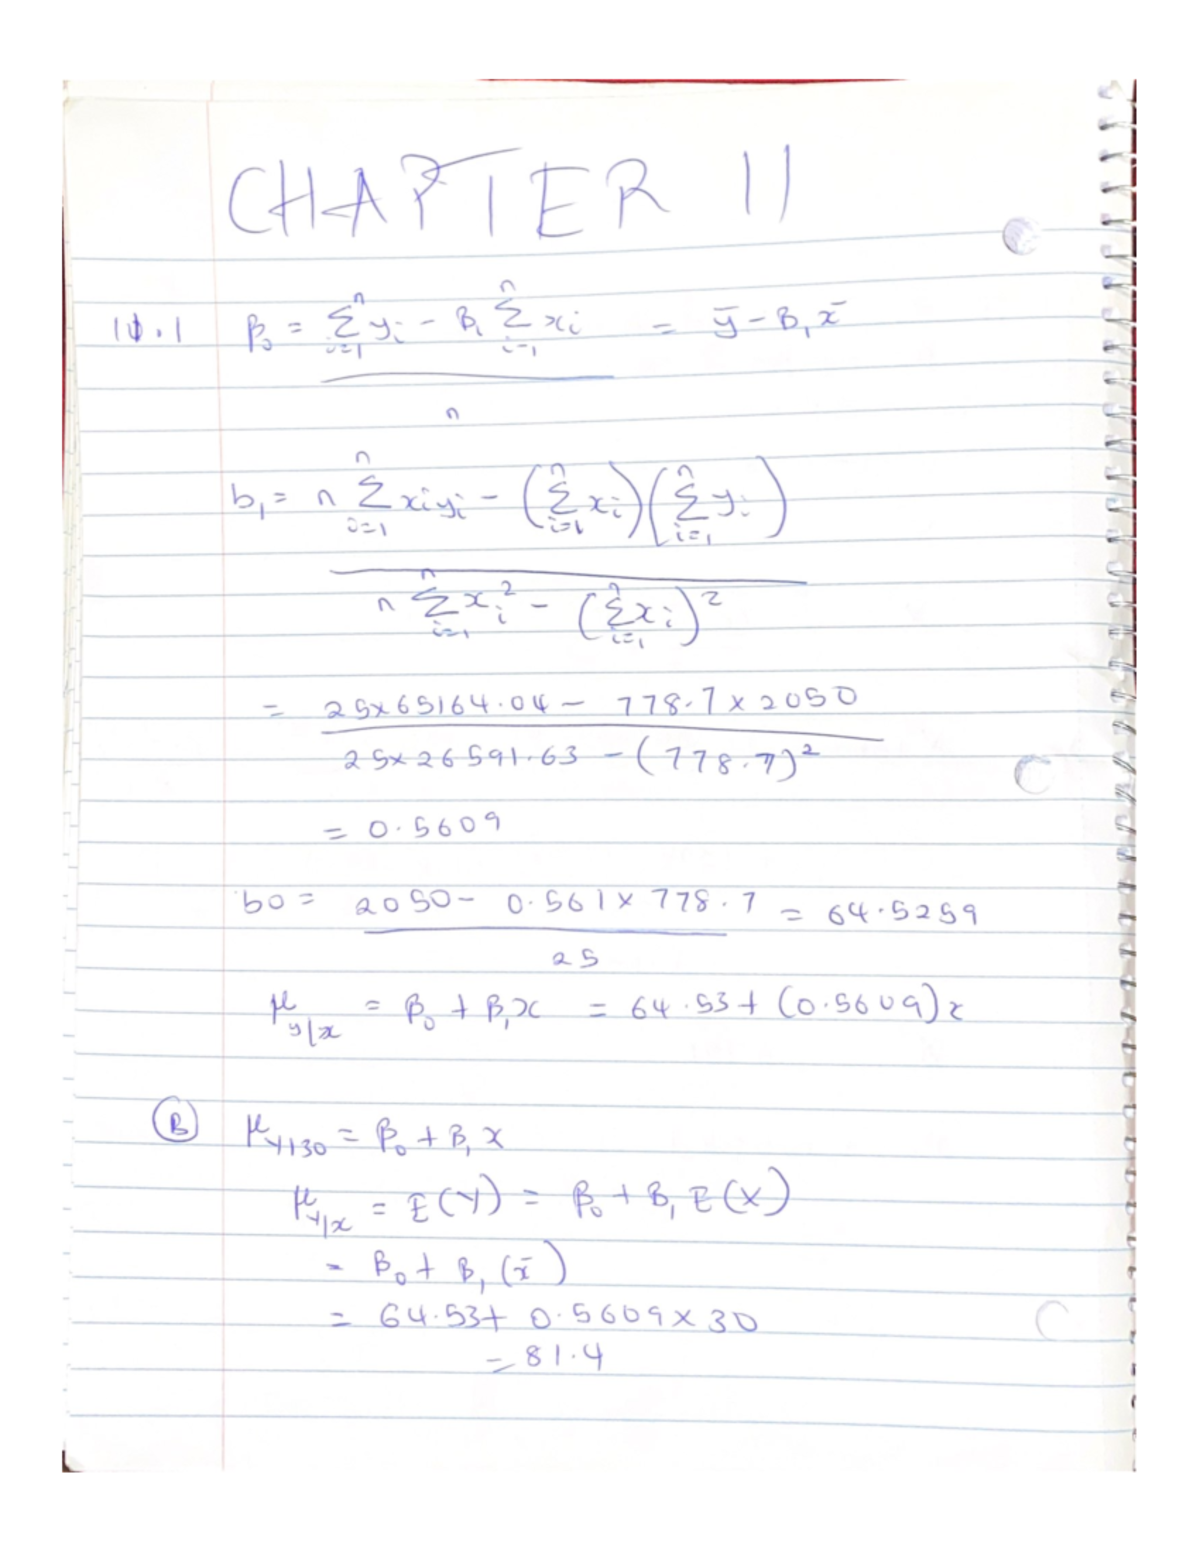 CHAPTER 11
11.1 β₀ = (Σⁿᵢ₌₁ yᵢ − B₁ Σⁿᵢ₌₁ xᵢ) / n = ȳ − B₁x̄
b₁ = (n Σⁿᵢ₌₁ xᵢyᵢ − (Σⁿᵢ₌₁ xᵢ)(Σⁿᵢ₌₁ yᵢ)) / (n Σⁿᵢ₌₁ xᵢ² − (Σⁿᵢ₌₁ xᵢ)²)
= (25×65164.04 − 778.7×2050) / (25×26591.63 − (778.7)²)
= 0.5609
b0 = (2050 − 0.561×778.7) / 25 = 64.5259
μ y|x = β₀ + β₁x = 64.53 + (0.5609)x
B μ Y|30 = β₀ + B₁x
μ Y|x = E(Y) = β₀ + B₁E(X)
= β₀ + B₁(x̄)
= 64.53 + 0.5609×30
= 81.4